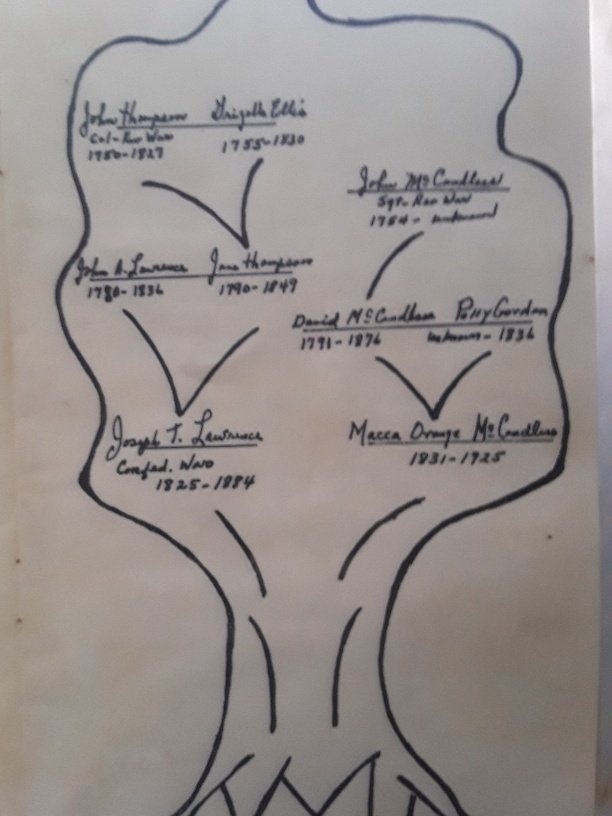 John Thompson Drizella Ellis
Col-Rev War
1750-1827 1755-1830
John McCandless
Sgt-Rev War
1754 - unknown
John A. Lawrence Jane Thompson
1780-1836 1790-1849
David McCandless Polly Gordon
1791-1876 unknown-1836
Joseph T. Lawrence
Confed. War
1825-1884
Macca Orange McCandless
1831-1925